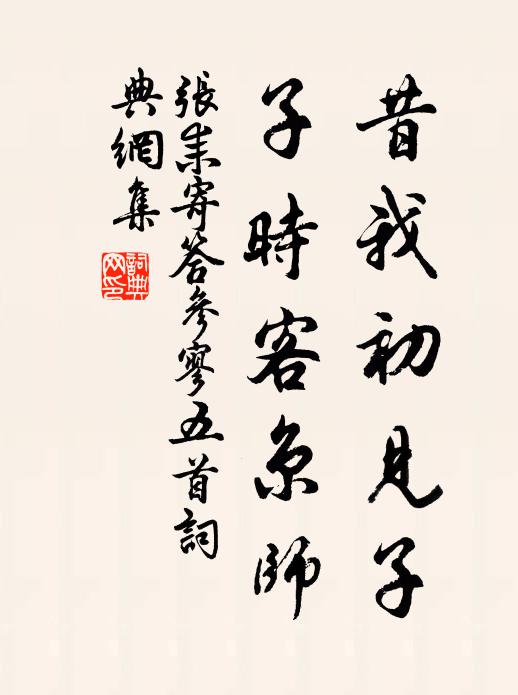 昔我初見子
子時客京師
張耒寄答參寥五首詞
典網集
詞典
网印